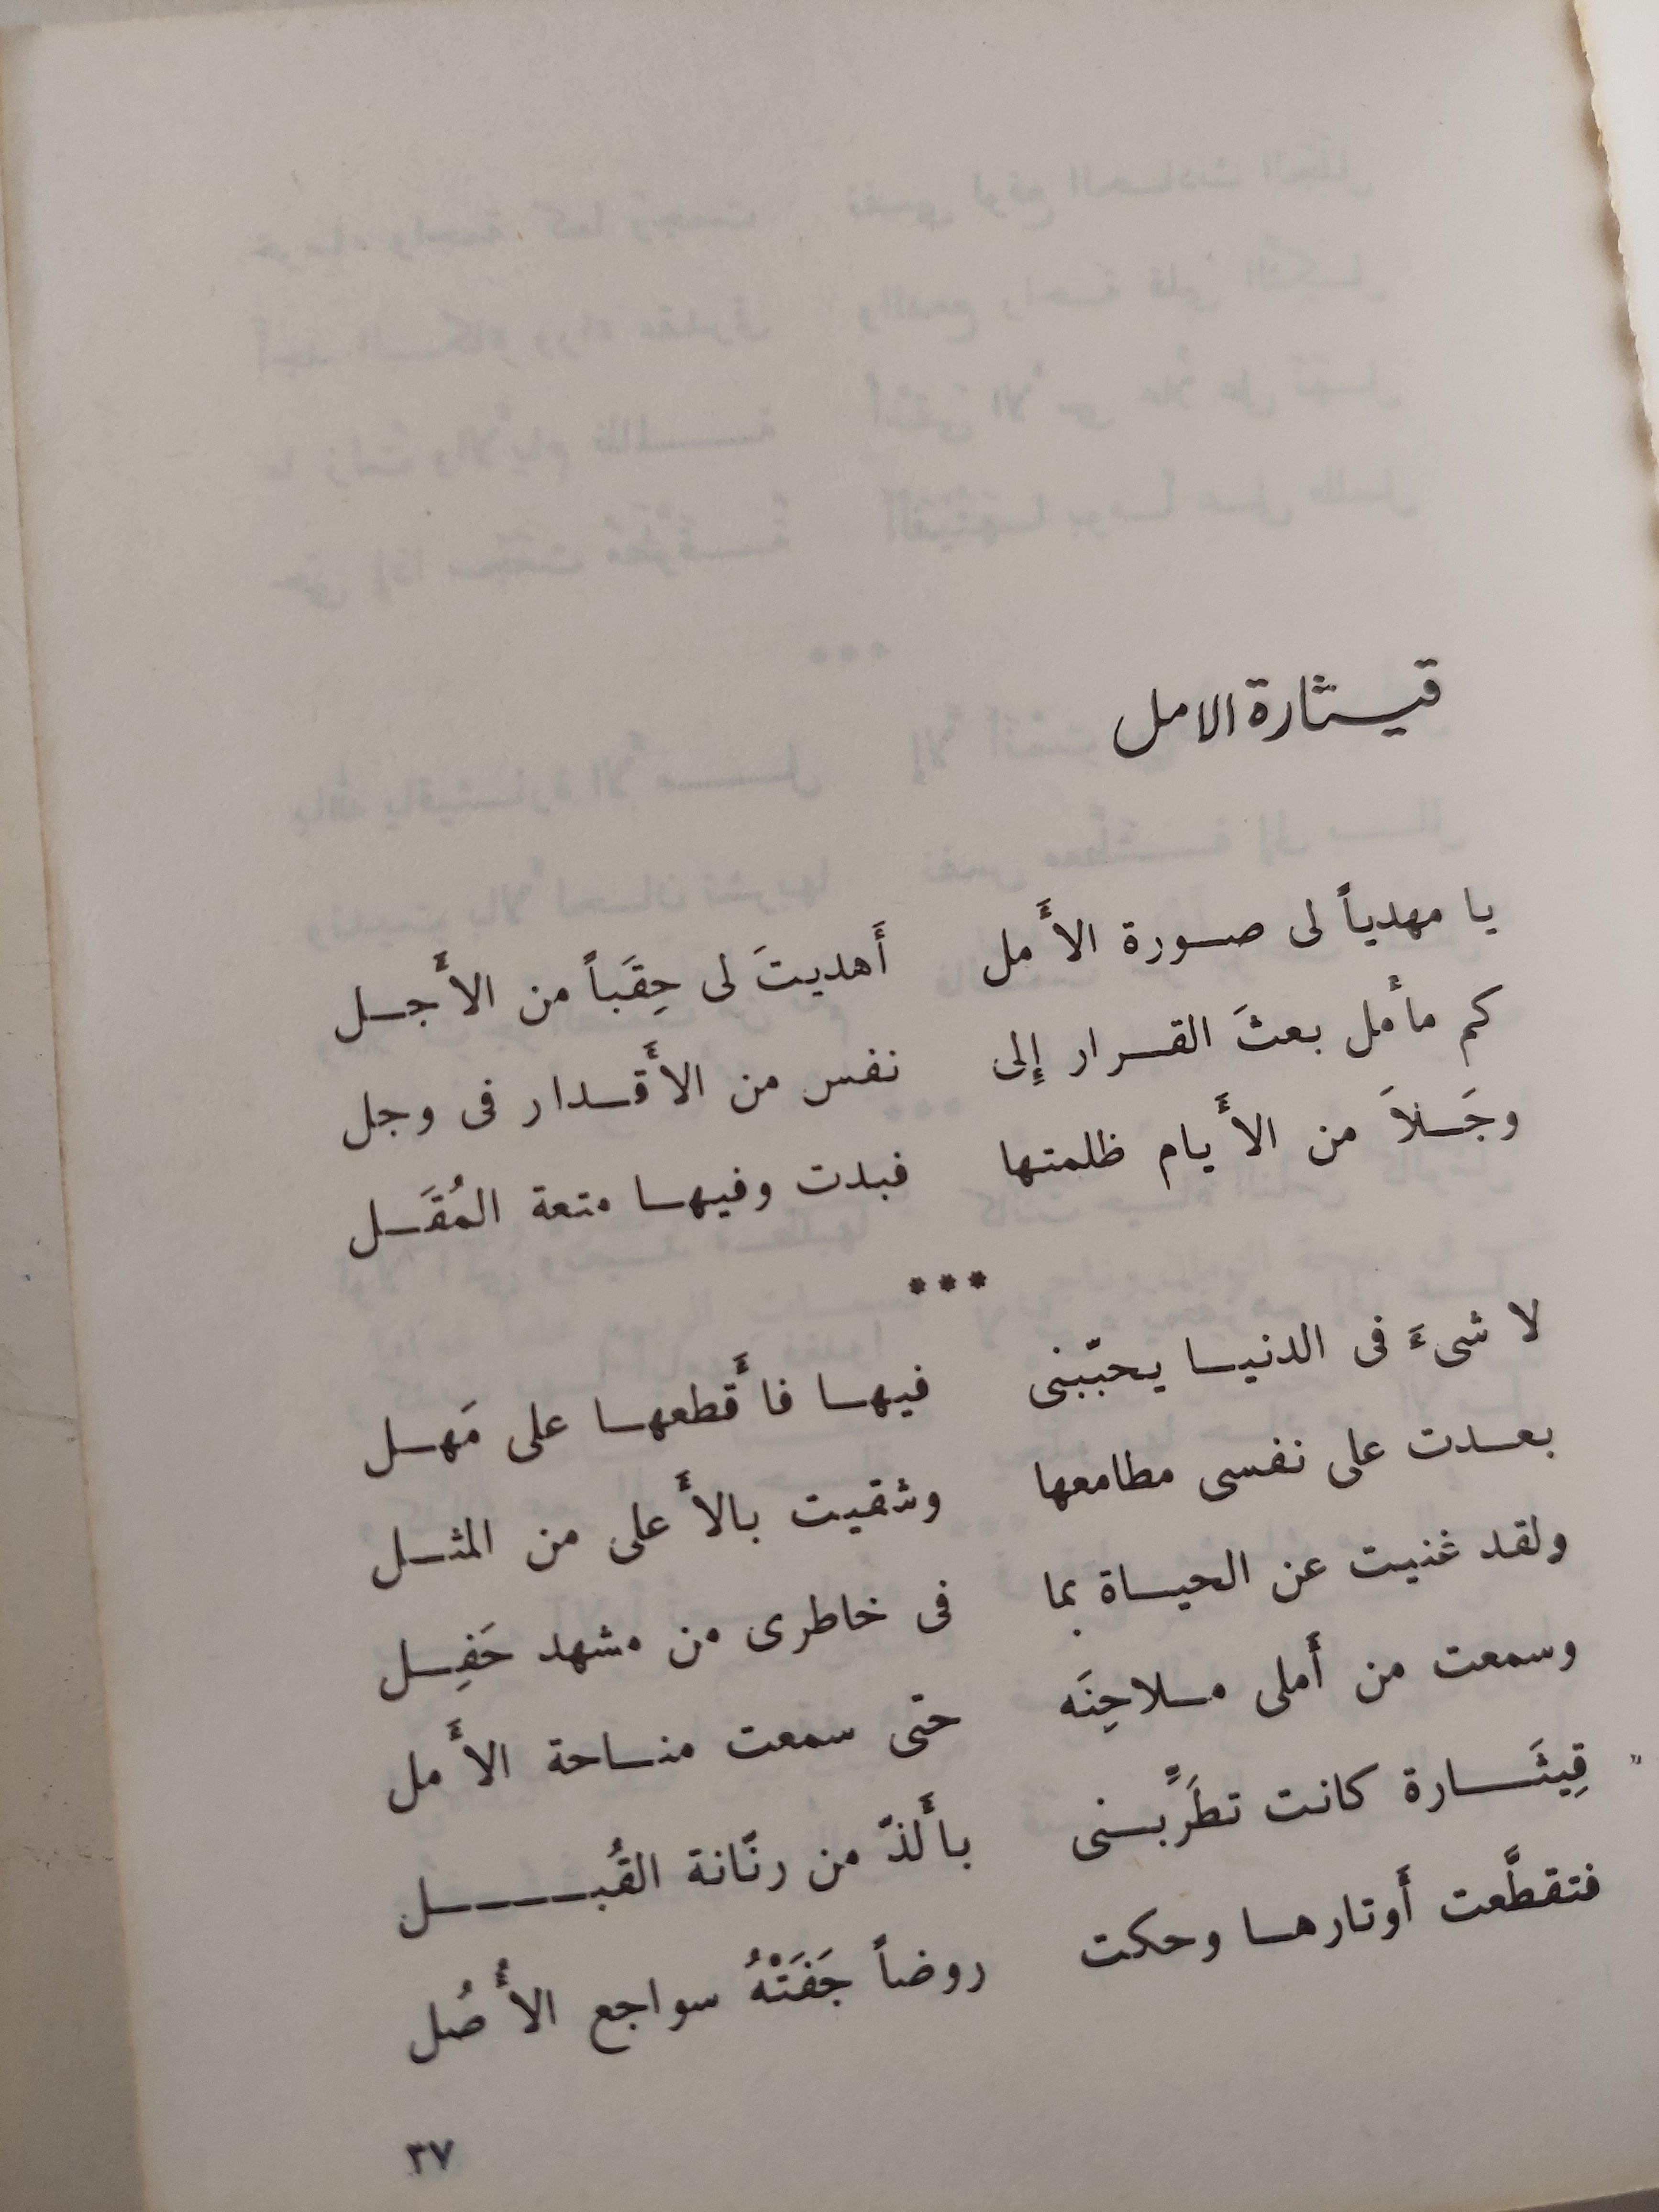 قيثارة الامل
يا مهدياً لى صورة الأَمل أَهديتَ لى حِقَباً من الأَجل
كم مأمل بعثَ القرار إِلى نفس من الأَقدار فى وجل
وجَلاَ من الأَيام ظلمتها فبدت وفيها متعة المُقَل
***
لا شىءَ فى الدنيا يحبّبنى فيها فأَقطعها على مَهل
بعدت على نفسى مطامعها وشقيت بالأَعلى من المثل
ولقد غنيت عن الحياة بما فى خاطرى من مشهد حَفِل
وسمعت من أَملى ملاحِنَه حتى سمعت مناحة الأَمل
قِيثَارة كانت تطَرِّبنى بأَلذّ من رنّانة القُبل
فتقطَّعت أَوتارها وحكت روضاً جَفَتْهُ سواجع الأُصُل
٣٧